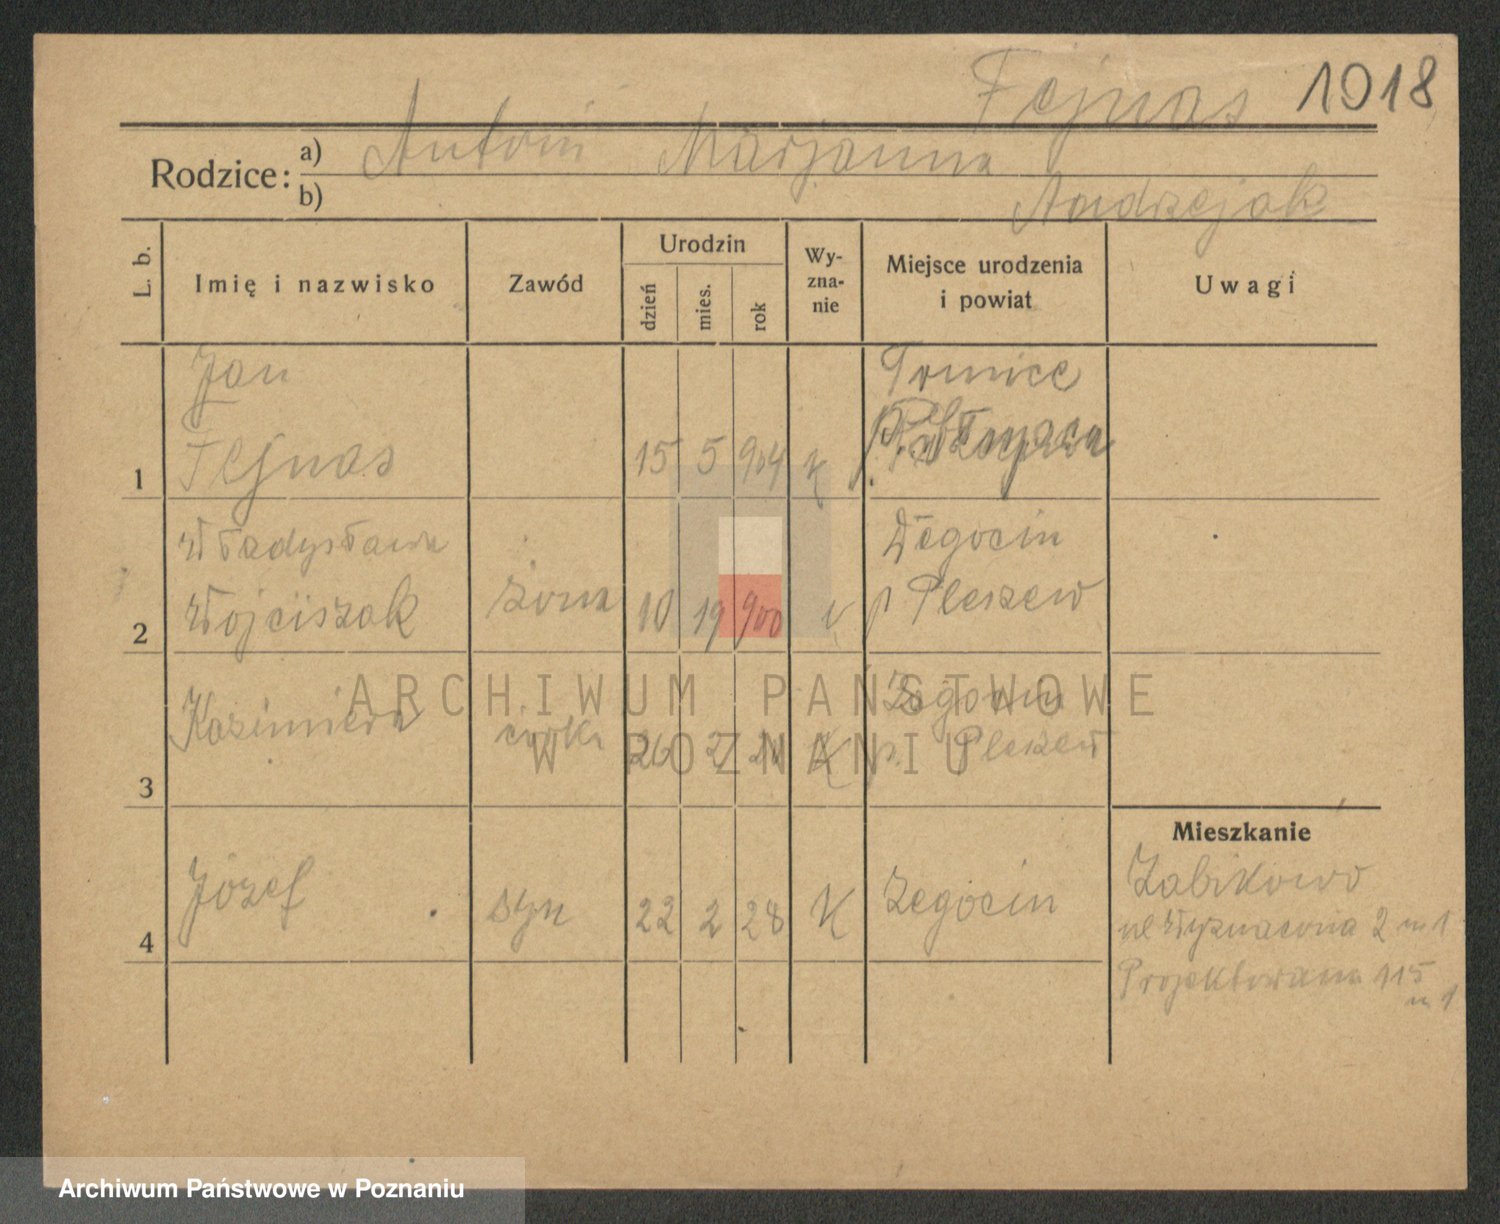 Fejnas 1018
Rodzice:
a) Antoni Marjanna
b) Andrzejak
L. b.
Imię i nazwisko
Zawód
Urodzin
dzień
mies.
rok
Wy-
zna-
nie
Miejsce urodzenia
i powiat
Uwagi
Jan
Fejnas
1
15 5 904 K
Władysława
Wojciszak
2
żona
10 19 900
p Pleszew
Kazimiera
3
córka
26 2
K
p. Pleszew
Józef
4
syn
22 2 28 K
Żegocin
Mieszkanie
Żabikowo
ul Wyznaczona 2 m 1
Projektowana 115
m 1
ARCHIWUM PAŃSTWOWE
W POZNANIU
Archiwum Państwowe w Poznaniu